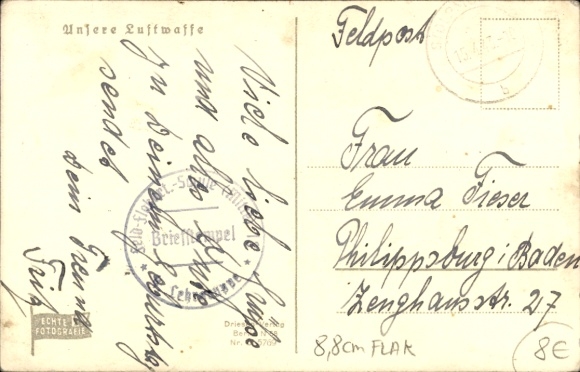 Unsere Luftwaffe
Viele liebe Grüße
und alles Gute
zu Deinem Geburtstag
sendet
Dein Freund
Fritz
Briefstempel
Lehrgruppe
ECHTE
FOTOGRAFIE
Verlag
Feldpost
Frau
Emma Fieser
Philippsburg i/Baden
Zeughausstr. 27
8,8cm FLAK
8€